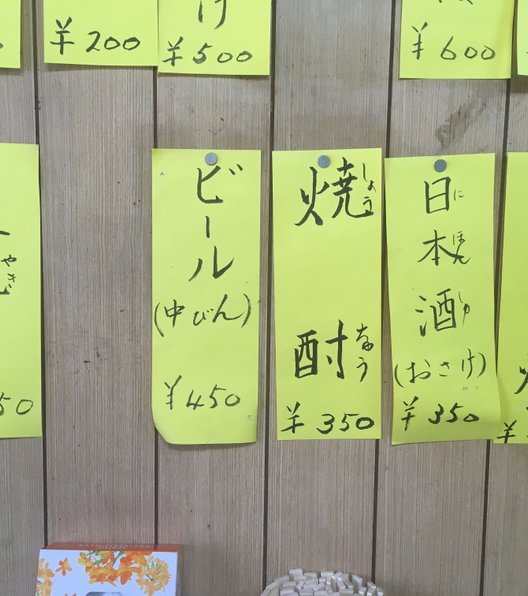 ¥200
け
¥500
¥600
やき
50
ビール
(中びん)
¥450
焼酎
しょうちゅう
¥350
日本酒
にほんしゅ
(おさけ)
¥350